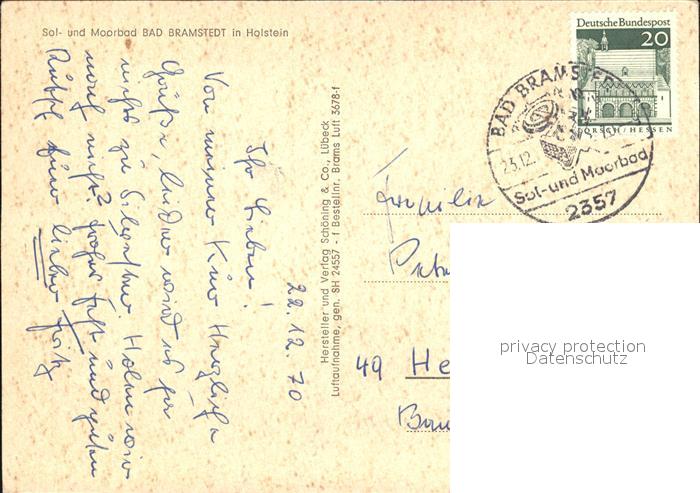 Sol- und Moorbad BAD BRAMSTEDT in Holstein
22.12.70
Ihr Lieben!
Von meiner Kur Herzliche
Grüße, leider wird es für
nichts zu Silvester. Holen wir
noch nicht? Frohes Fest und guten
Rutsch Euer lieber Fritz
Hersteller und Verlag Schöning & Co., Lübeck
Luftaufnahme, gen. SH 24557 - f Bestellnr. Brams Luft 3678-f
Deutsche Bundespost
20
LORSCH/HESSEN
BAD BRAMSTEDT
23.12.
Sol- und Moorbad
2357
Familie
49 He
privacy protection
Datenschutz